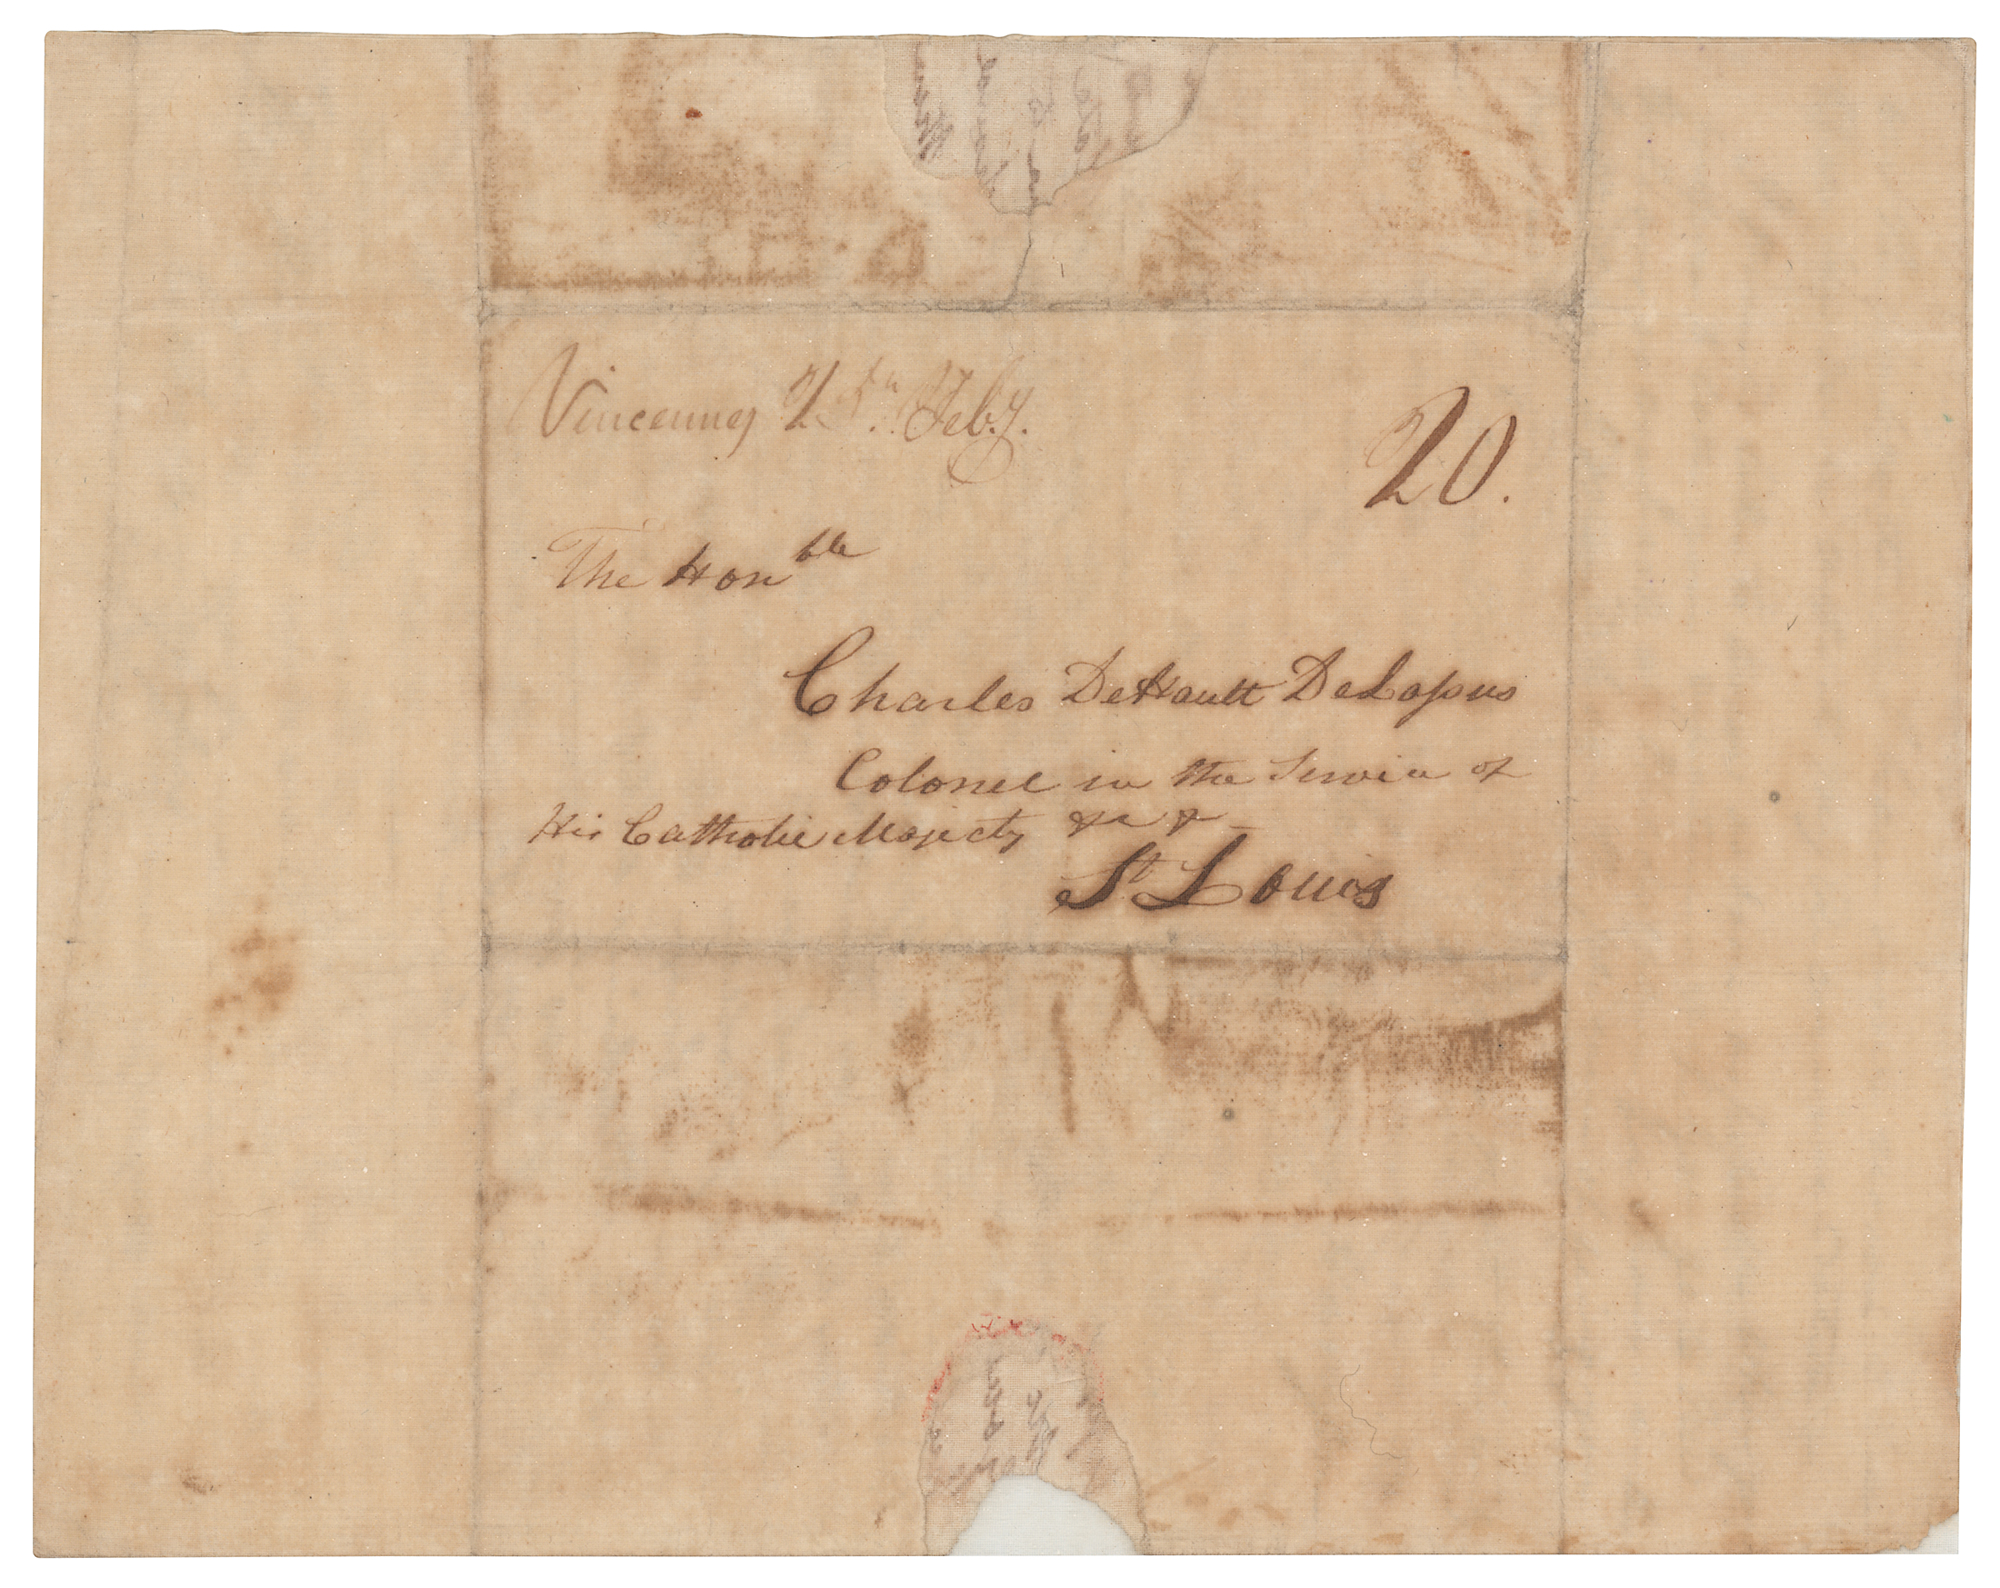 Vincennes 25th. Feby.
20.
The Honble
Charles DeHault DeLassus
Colonel in the Service of
His Catholic Majesty &c &
St Louis